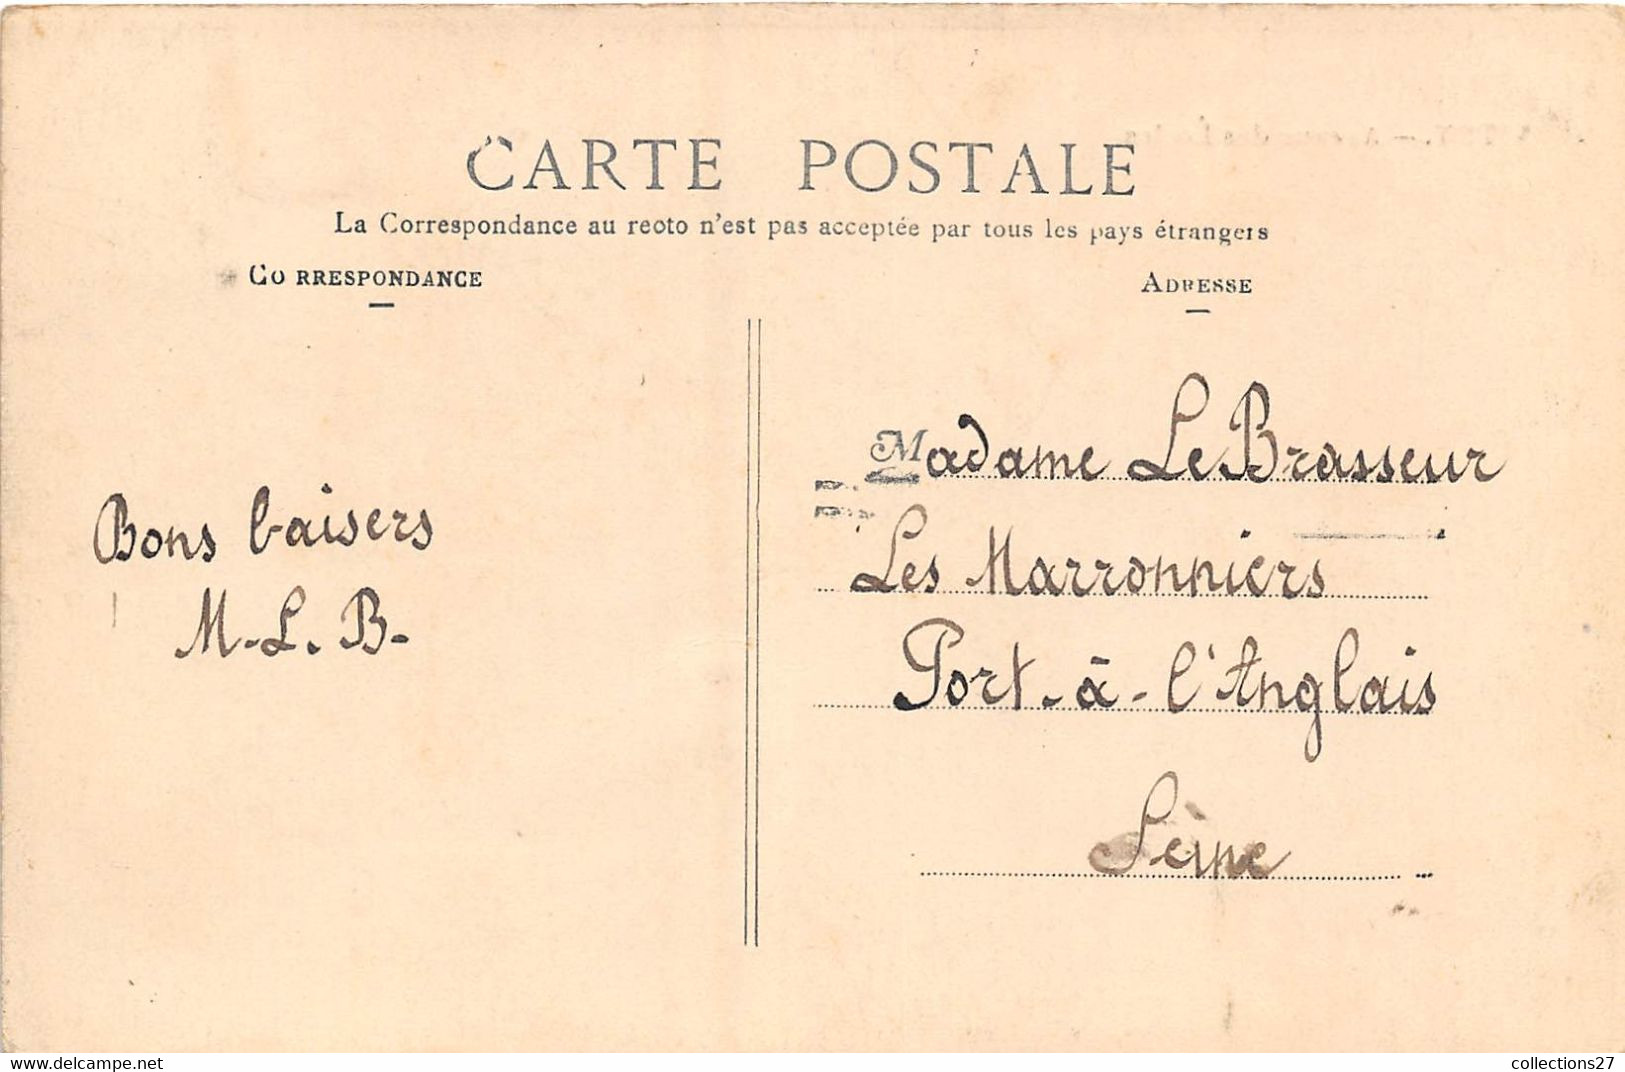 CARTE POSTALE
La Correspondance au recto n'est pas acceptée par tous les pays étrangers
CORRESPONDANCE
ADRESSE
Bons baisers
M.L.B.
Madame Le Brasseur
Les Marronniers
Port-à-l'Anglais
Seine
https://www.delcampe.net
collections27